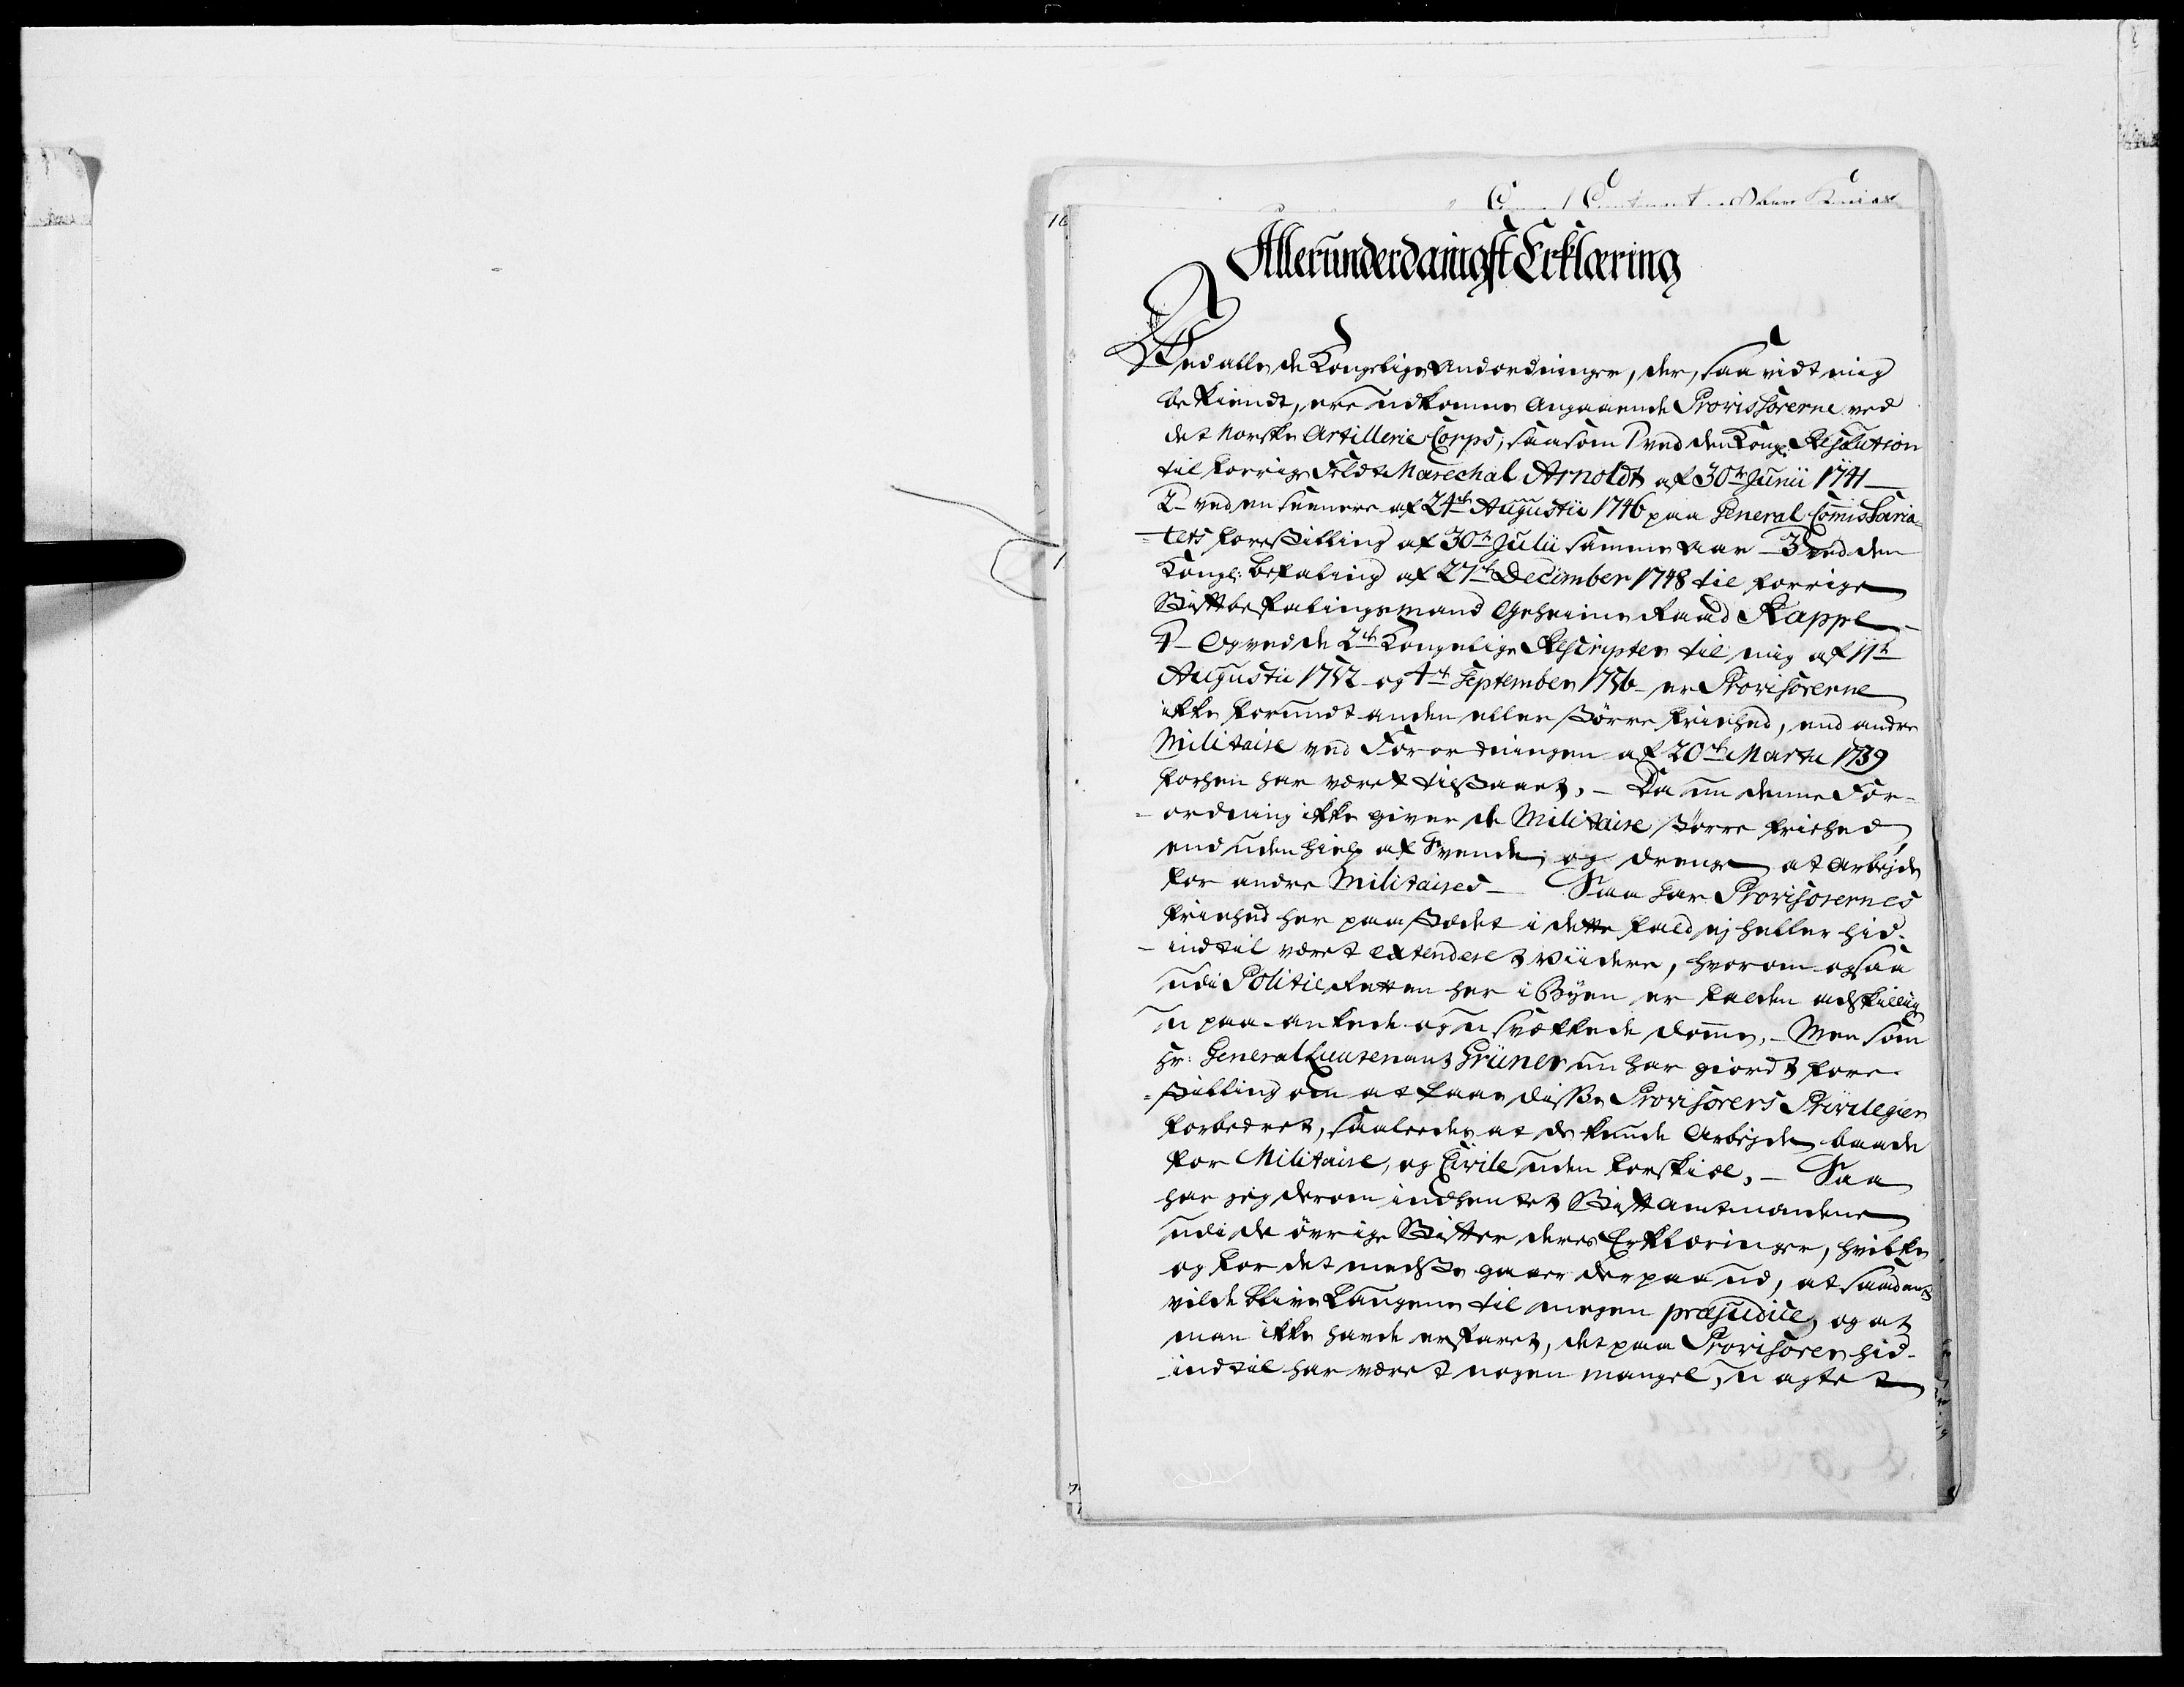 Allerunderdanigst Erklæring
Wed alle de Kongelige Andordninger, der, saa vidt mig
bekiendt, ere udkomne angaaende Provissorerne ved
det Norske Artillerie Corps, saasom 1 ved den Kong: Resolution
til forrige Feldt Marechal Arnoldt af 30te Junii 1741 —
2 - ved en seenere af 24de Augustii 1746 paa General Commissaria-
-tets forestilling af 30te Julii samme Aar - 3 ved den
Kongl: Befaling af 27de December 1748 til forrige
Stiftbefalingsmand Geheime Raad Rappe
4 - Og ved de 2de Kongelige Rescripter til mig af 11te
Augustii 1752 og 4de September 1756 - er Provisorerne
ikke forundt anden eller større friehed, end andre
Militaire ved Forordningen af 20de Martii 1739
forhen har været tilstaaet, - Da nu denne For-
-ordning ikke giver de Militaire større friehed,
end uden hielp af Svende, og drenge at arbejde
for andre Militaires - Saa har Provisorernes
friehed her paa stædet i dette fald ej heller hid-
-indtil været extenderet viidere, hvorom ogsaa
udi Politie Retten her i Byen er falden adskillige
u paa-ankede og u svækkede domme, - Men som
Hr: General Lieutenant Grüner nu har giordt fore-
-stilling om at faae disse Provisorers Privilegier
forbedret, saaledes at de kunde Arbejde baade
for Militaire, og Civile uden forskiæl, - Saa
har jeg derom indhentet Stiftamtmændene
udi de øvrige Stifter deres Erklæringer, hvilke
og for det meeste gaaer derpaa ud, at saadant
vilde blive Laugene til megen præjudice, og at
man ikke havde erfaret, det paa Provisorer hid-
-indtil har været nogen mangel, u agtet